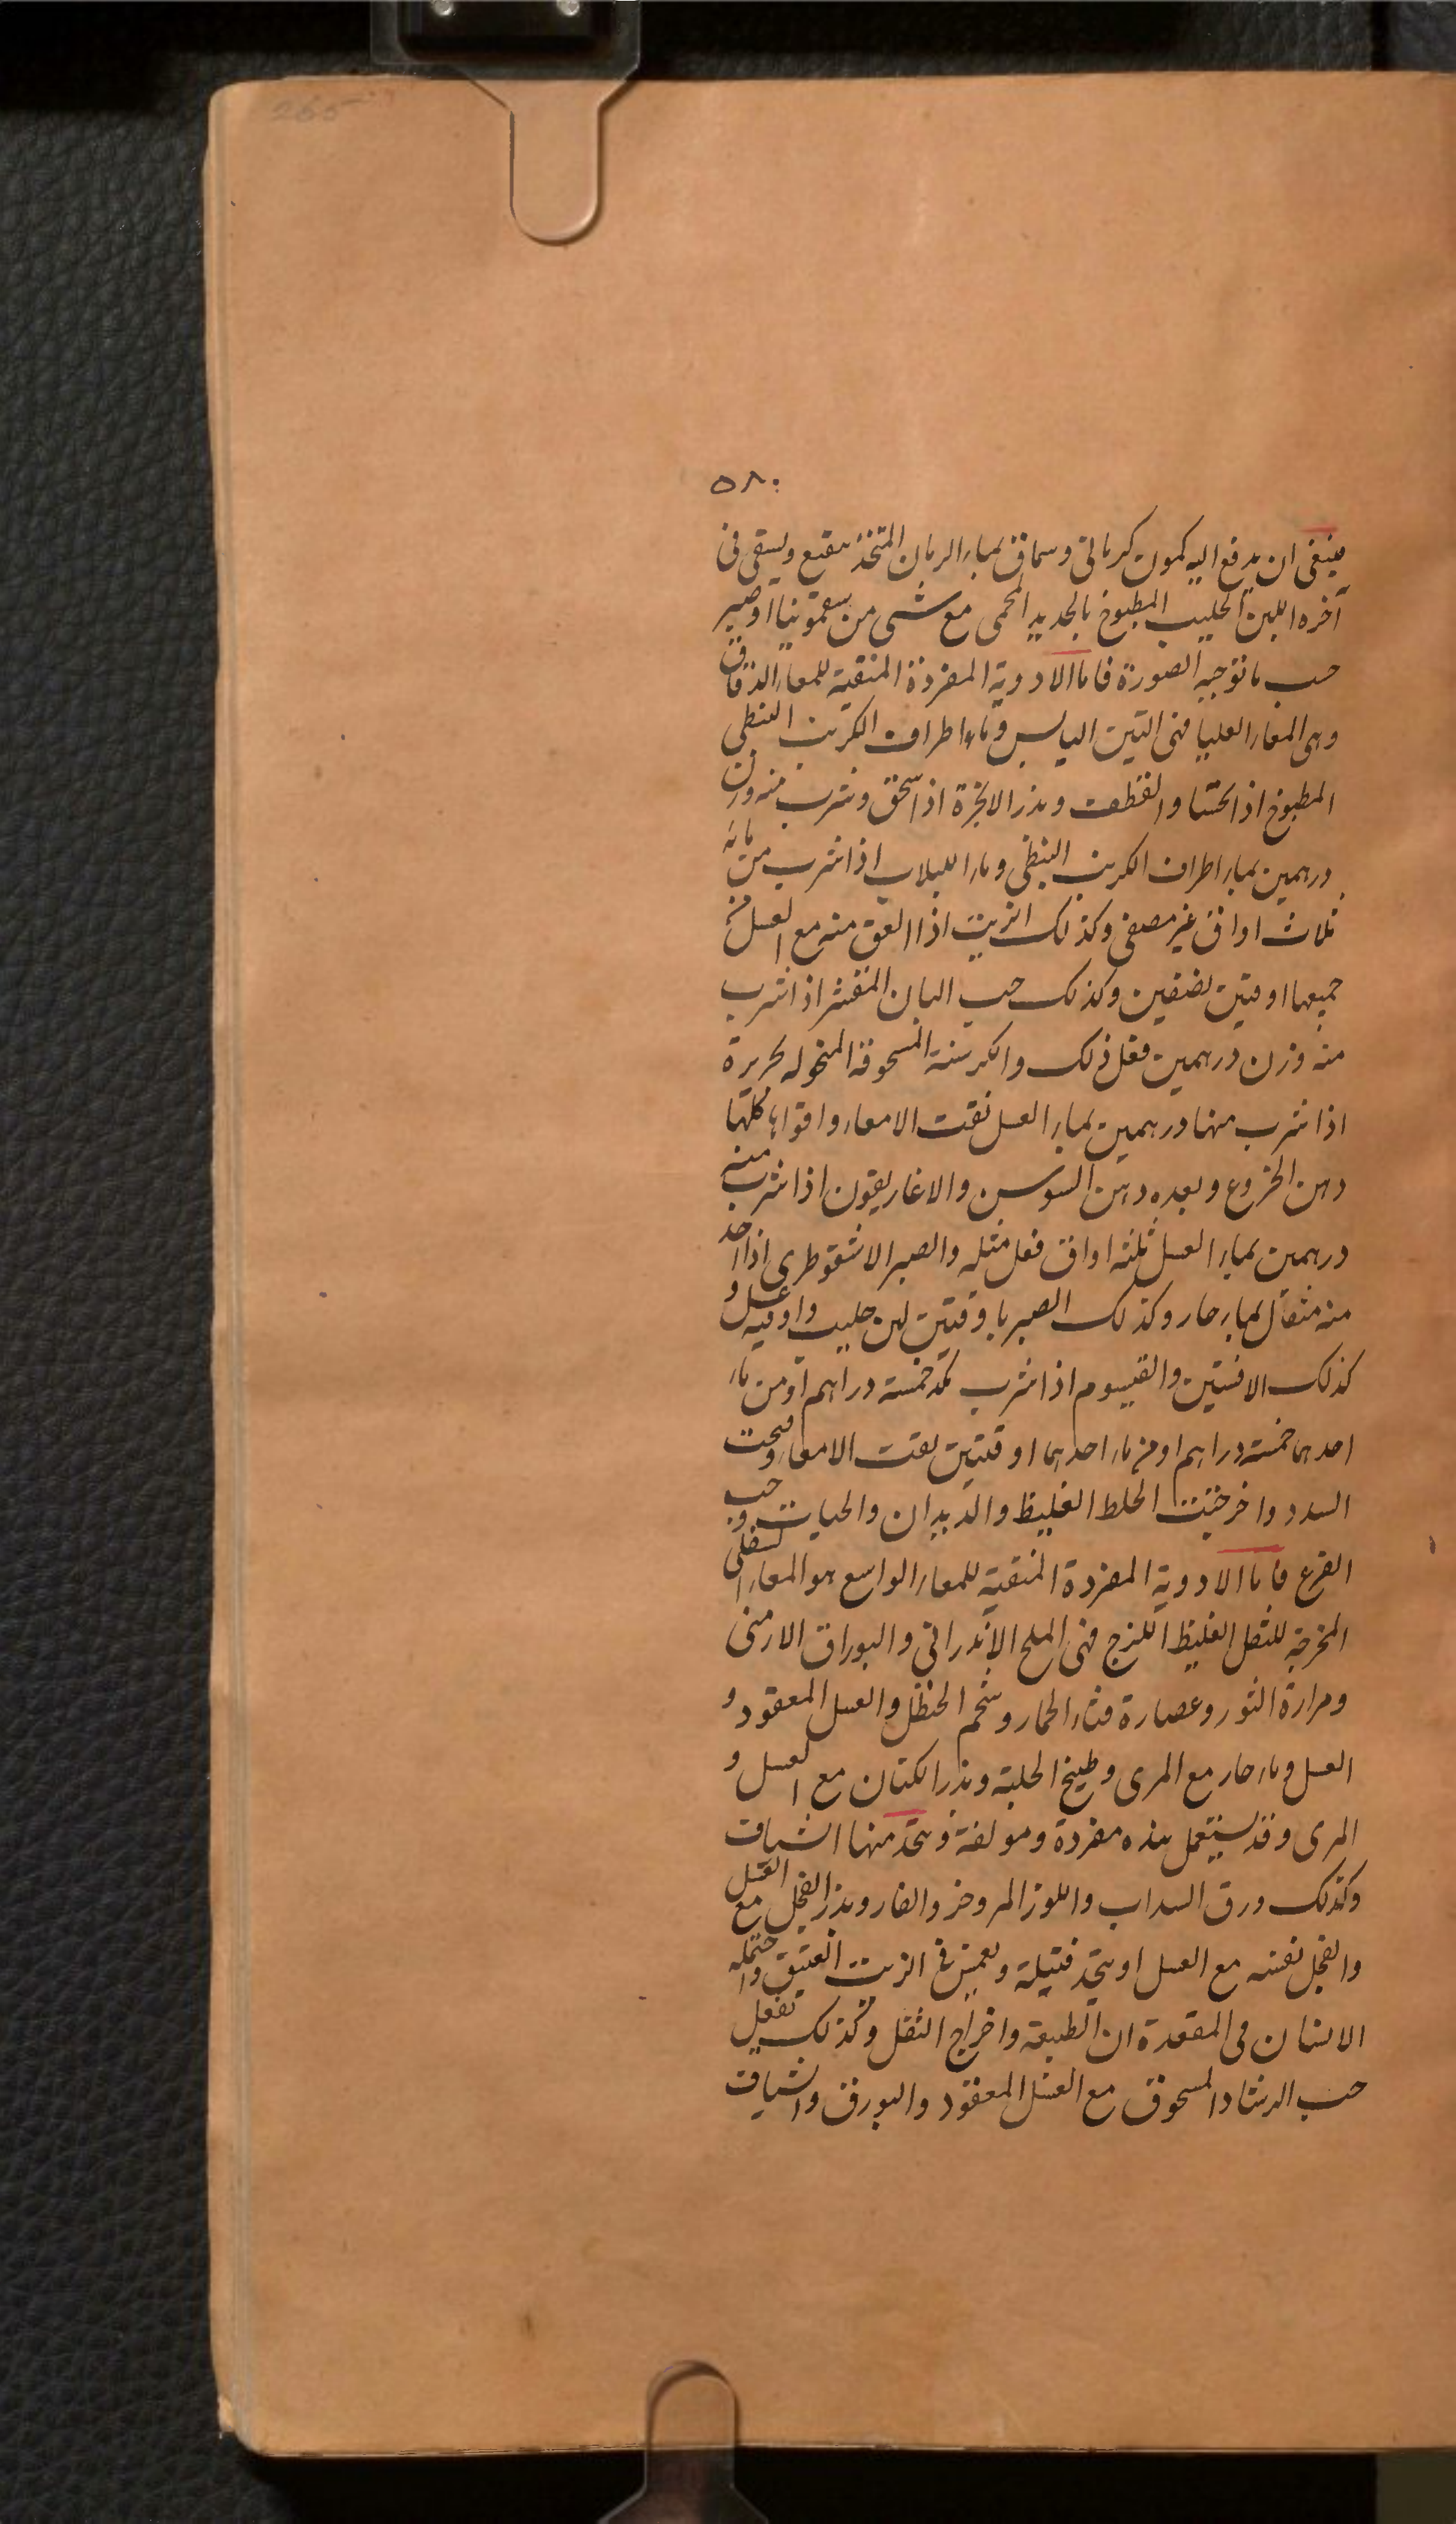 265
٥٨٠
فينبغى ان يدفع اليه كمون كرمانى وسماق بماء الرمان المتخذ بقمع ويسقى فى
آخره اللبن الحليب المطبوخ بالحديد المحمى مع شىء من سقمونيا او صبر
حسب ما توجبه الصورة فاما الادوية المفردة المنقية للمعاء الدقاق
وهى المعاء العليا فهى التين اليابس وماء اطراف الكرنب النبطى
المطبوخ اذا تحسا والقطف وبذر الانجرة اذا سحق وشرب منه وزن
درهمين بماء اطراف الكرنب النبطى وماء اللبلاب اذا شرب من مائه
ثلاث اواق غير مصفى وكذلك الزيت اذا العق منه مع العسل من
جميعها اوقيتين نصفين وكذلك حب البان المقشر اذا شرب
منه وزن درهمين فعل ذلك والكرسنة المسحوقة المنخولة بحريرة
اذا شرب منها درهمين بماء العسل نقت الامعاء واقواها كلها
دهن الخروع وبعده دهن السوسن والاغاريقون اذا شرب منه
درهمين بماء العسل ثلثه اواق فعل مثله والصبر الاسقوطرى اذا اخذ
منه مثقال بماء حار وكذلك الصبر باوقيتين لبن حليب واوقيه عسل و
كذلك الافسنتين والقيسوم اذا شرب خمسة دراهم او من ماء
احدهما خمسة دراهم او من ماء احدهما اوقيتين نقت الامعاء وفتحت
السدد واخرجت الخلط الغليظ والديدان والحيات وحب
القرع فاما الادوية المفردة المنقية للمعاء الواسع هو المعاء السفلى
المخرجة للثفل الغليظ اللزج فهى الملح الاندرانى والبوراق الارمنى
ومرارة الثور وعصارة قثاء الحمار وشحم الحنظل والعسل المعقود و
العسل وماء حار مع المرى وطبيخ الحلبة وبذر الكتان مع العسل و
المرى وقد يستعمل هذه مفردة ومولفة ويتخذ منها اشياف
وكذلك ورق السداب واللوز المر وخر والفار وبذر الفجل مع العسل
والفجل نفسه مع العسل او يتخذ فتيلة ويغمس فى الزيت العتيق واحتمله
الانسان فى المقعدة الان الطبيعة واخراج الثفل وكذلك تفعل
حب الرشاد المسحوق مع العسل المعقود والبورق واشياف